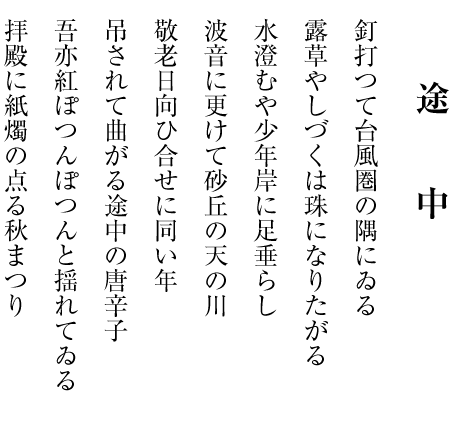 途中
釘打つて台風圏の隅にゐる
露草やしづくは珠になりたがる
水澄むや少年岸に足垂らし
波音に更けて砂丘の天の川
敬老日向ひ合せに同い年
吊されて曲がる途中の唐辛子
吾亦紅ぽつんぽつんと揺れてゐる
拝殿に紙燭の点る秋まつり